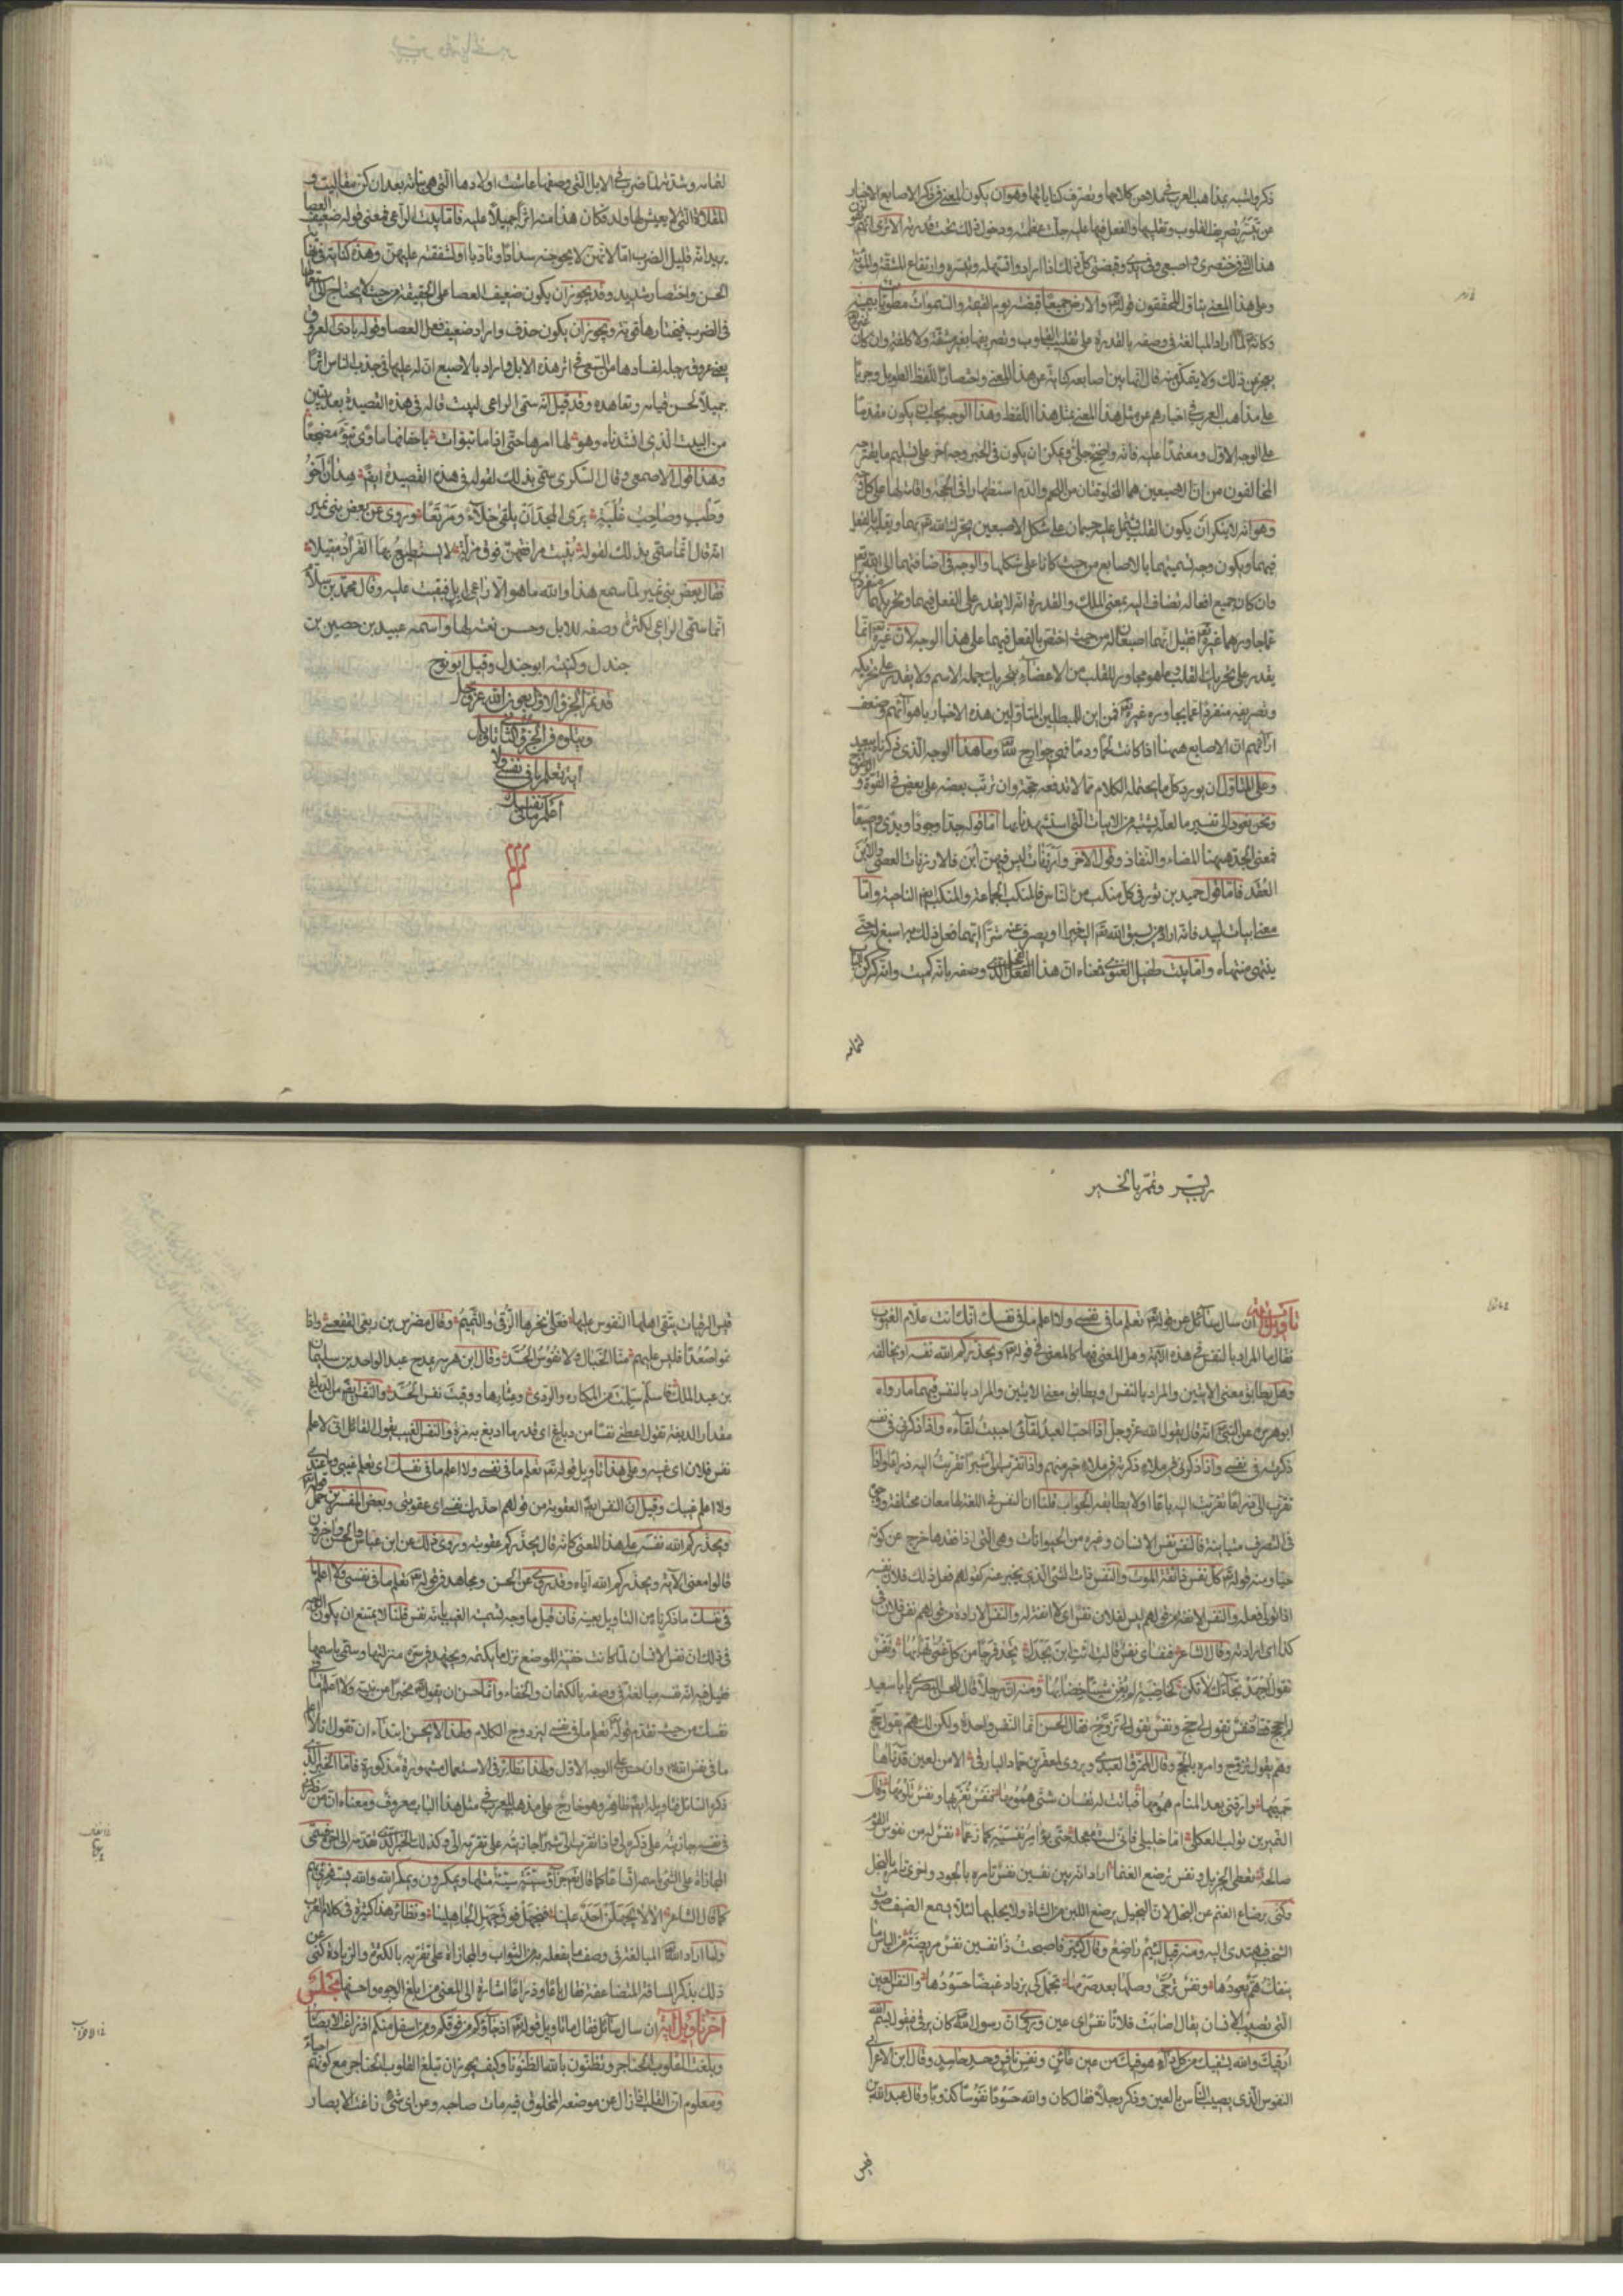 ذكر اشبه بمذاهب العرب في ملاحن كلامها وتصرف كناياتها وهو ان يكون المعنى في ذكر الاصابع الاخبار
عن تيسر تصريف القلوب وتقليبها والفعل فيها عليه جلت عظمته ودخول ذلك تحت قدرته الا ترى انهم يقولون
هذا الشئ في خنصري واصبعي وفي يدي وقبضتي كل ذلك اذا ارادوا تسهله وتيسره وارتفاع المشقة والمؤنة
وعلى هذا المعنى يتاول المحققون قوله تع والارض جميعا قبضته يوم القيمة والسموات مطويات بيمينه
فكانه لما اراد المبالغة في وصفه بالقدرة على تقليب القلوب وتصريفها بغير مشقة ولا كلفة وان كان غيره
يعجز عن ذلك ولا يتمكن منه قال انها بين اصابعه كناية عن هذا المعنى واختصارا للفظ الطويل وجريا
على مذاهب العرب في اخبارهم عن مثل هذا المعنى بمثل هذا اللفظ وهذا الوجه يجب ان يكون مقدما
على الوجه الاول ومعتمدا عليه فانه واضح جلي ويمكن ان يكون في الخبر وجه اخر على تسليم ما يقترحه
المخالفون من ان الاصبعين هما المخلوقتان من اللحم والدم استظهارا في الحجة واقامة لها على كل وجه
وهو انه لا ينكر ان يكون القلب يشتمل عليه جسمان على شكل الاصبعين يحركه الله تع بهما ويقلبه بالفعل
فيهما ويكون وجه تسميتهما بالاصابع من حيث كانا على شكلها والوجه في اضافتهما الى الله تع
وان كانت جميع افعاله تضاف اليه بمعنى الملك والقدرة انه لا يقدر على الفعل فيهما وتحريكهما منفردين
عما جاورهما غيره تع فقيل انهما اصبعان له من حيث اختص بالفعل فيهما على هذا الوجه لان غيره انما
يقدر على تحريك القلب وما هو مجاور للقلب من الاعضاء بتحريك جملة الجسم ولا يقدر على تحريكه
وتصريفه منفردا عما يجاوره غيره تع فمن اين للمبطلين المتاولين هذه الاخبار باهوائهم وضعف
ارائهم ان الاصابع ههنا اذا كانت لحما ودما فهي جوارح لله وما هذا الوجه الذي ذكرناه ببعيد
وعلى المتاول ان يورد كل ما يحتمله الكلام مما لا تدفعه حجة وان ترتب بعضه على بعض في القوة والوضوح
ونحن نعود الى تفسير ما لعله يشتبه من الابيات التي استشهدنا بها اما قوله حدا وجودا وندى واصبعا
فمعنى الحد ههنا المضاء والنفاذ وقول الاخر وارزنات ليس فيهن ابن فالارزنات العصي والابن
العقد فاما قول حميد بن ثور في كل منكب من الناس فالمنكب الجماعة والمنكب ايضا الناحية واما
معنى ابيات لبيد فانه اراد من يسبق الله تع اليه خيرا او يصرف عنه شرا ايهما فعل ذلك به اسبغ له حتى
ينتهي منتهاه واما بيت طفيل الغنوي فمعناه ان هذا الفحل الذي وصفه بانه كميت وانه كركن الباب
لتمامه
لتمامه وشدته لما ضرب في الابل التي وصفها عاشت اولادها التي هي بناته بعد ان كن مقاليت و
المقلاة التي لا يعيش لها ولد فكان هذا منه اثرا جميلا عليه فاما بيت الراعي فمعنى قوله ضعيف العصا
يريد انه قليل الضرب اما لانهن لا يحوجنه سدادا وتادبا او لشفقته عليهن وهذه كناية في نهاية
الحسن واختصار شديد وقد يجوز ان يكون ضعيف العصا على الحقيقة من حيث لا يحتاج الى استعمالها
في الضرب فيختارها قوية ويجوز ان يكون حذف واراد ضعيف فعل العصا وقوله بادي العروق
يعني عروق رجله لفسادها من السعي في اثر هذه الابل واراد بالاصبع ان له عليها في جذب الناس اثرا
جميلا لحسن قيامه وتعاهده وقد قيل انه سمى الراعي لبيت قاله في هذه القصيدة بعد بيتين
من البيت الذي انشدناه وهو لها امرها حتى اذا ما تبوات باخفافها ماوى تبوء مضجعا
وهذا قول الاصمعي وقال السكري سمى بذلك لقوله في هذه القصيدة ايضا هدان اخو
وطب وصاحب علبة يرى المجد ان يلقى خلاء ومرتعا وروى عن بعض بني نمير
انه قال انما سمى بذلك لقوله تبيت مرافقهن فوق مزلة لا يستطيع بها القراد مقيلا
فقال بعض بني نمير لما سمع هذا والله ما هو الا راعي ابل فبقيت عليه وقال محمد بن سلام
انما سمى الراعي لكثرة وصفه للابل وحسن نعته لها واسمه عبيد بن حصين بن
جندل وكنيته ابو جندل وقيل ابو نوح
قد تم الجزو الاول بعون الله عز وجل
ويتلوه في الجزو الثاني تاويل
اية تعلم ما في نفسي ولا
اعلم ما في نفسك
رب يسر وتمم بالخير
تاويل اية ان سال سائل عن قوله تع تعلم ما في نفسي ولا اعلم ما في نفسك انك انت علام الغيوب
فقال ما المراد بالنفس في هذه الاية وهل المعنى فيها كالمعنى في قوله تع ويحذركم الله نفسه او يخالفه
وهل يطابق معنى الايتين والمراد بالنفس فيهما ما رواه
ابو هريرة عن النبي انه قال يقول الله عز وجل اذا احب العبد لقائي احببت لقاءه واذا ذكرني في نفسه
ذكرته في نفسي واذا ذكرني في ملاء ذكرته في ملاء خير منهم واذا تقرب الي شبرا تقربت اليه ذراعا واذا
تقرب الي ذراعا تقربت اليه باعا او لا يطابقه الجواب قلنا ان النفس في اللغة لها معان مختلفة ووجوه
في التصرف متباينة فالنفس نفس الانسان وغيره من الحيوانات وهي التي اذا فقدها خرج عن كونه
حيا ومنه قوله تع كل نفس ذائقة الموت والنفس ذات الشئ الذي يخبر عنه كقولهم فعل ذلك فلان نفسه
اذا تولى فعله والنفس الانفة من قولهم ليس لفلان نفس اي لا انفة له والنفس الارادة من قولهم نفس فلان في
كذا اي ارادته وقال الشاعر فنفساي نفس قالت ائت ابن بحدل تجد فرجا من كل غمى تهابها ونفس
تقول اجهد نجاءك لا تكن كخاضبة لم يغن شيئا خضابها ومنه ان رجلا قال للحسن البصري يا با سعيد
لم احجج قط فنفس تقول لي حج ونفس تقول لي تزوج فقال الحسن انما النفس واحدة ولكن لك هم يقول حج
وهم يقول تزوج وامره بالحج وقال الممزق العبدي ويروى لمعقر بن حمار البارقي الا من لعين قد نآها
حميمها وارقني بعد المنام همومها فباتت له نفسان شتى همومها فنفس تعزيها ونفس تلومها وقال
النمر بن تولب العكلي اما خليلي فاني لست معجله حتى يؤامر نفسيه كما زعما نفس له من نفوس القوم
صالحة تعطي الجزيل ونفس ترضع الغنما اراد انه بين نفسين نفس تامره بالجود واخرى تامره بالبخل
وكنى برضاع الغنم عن البخل لان البخيل يرضع اللبن من الشاة ولا يحلبها لئلا يسمع الضيف صوت
الشخب فيهتدي اليه ومنه قيل لئيم راضع وقال كثير فاصبحت ذا نفسين نفس مريضة من الناس ما
ينفك هم يعودها ونفس ترجى وصلها بعد صرمها تجمل كي يزداد غيضا حسودها والنفس العين
التي تصيب الانسان يقال اصابت فلانا نفس اي عين وروى ان رسول الله كان يرقي فيقول بسم الله
ارقيك والله يشفيك من كل داء هو فيك من عين عائن ونفس نافس وحسد حاسد وقال ابن الاعرابي
النفوس الذي يصيب الناس بالعين وذكر رجلا فقال كان والله حسودا نفوسا كذوبا وقال عبد الله بن
قيس
قيس الرقيات يتقي اهلها النفوس عليها فعلى نحرها الرقى والتميم وقال مضرس بن ربعي الفقعسي واذا
نموا صعدا فليس عليهم منا الخبال ولا نفوس الحسد وقال ابن هرمة يمدح عبد الواحد بن سليمان
بن عبد الملك فاسلم سلمت من المكاره والردى وعثارها ووقيت نفس الحسد والنفس ايضا من الدباغ
مقدار الدبغة تقول اعطني نفسا من دباغ اي قدر ما ادبغ به مرة والنفس الغيب يقول القائل اني لا اعلم
نفس فلان اي غيبه وعلى هذا تاويل قوله تع تعلم ما في نفسي ولا اعلم ما في نفسك اي تعلم غيبي وما عندي
ولا اعلم غيبك وقيل ان النفس ايضا العقوبة من قولهم احذرك نفسي اي عقوبتي وبعض المفسرين حمل قوله تع
ويحذركم الله نفسه على هذا المعنى كانه قال يحذركم عقوبته وروى ذلك عن ابن عباس والحسن واخرون
قالوا معنى الاية ويحذركم الله اياه وقد روى عن الحسن ومجاهد في قوله تع تعلم ما في نفسي ولا اعلم ما
في نفسك ما ذكرناه من التاويل بعينه فان قيل ما وجه تسمية الغيب بانه نفس قلنا لا يمتنع ان يكون الوجه
في ذلك ان نفس الانسان لما كانت خفية الموضع نزل ما يكتمه ويجتهد في ستره منزلتها وسمى باسمها
فقيل فيه انه نفسه مبالغة في وصفه بالكتمان والخفاء وانما حسن ان يقول تع مخبرا عن نبيه ولا اعلم ما في
نفسك من حيث تقدم قوله تع تعلم ما في نفسي ليزدوج الكلام ولهذا لا يحسن ابتداء ان يقول انا لا اعلم
ما في نفس الله تع وان حسن على الوجه الاول ولهذا نظائر في الاستعمال مشهورة مذكورة فاما الخبر الذي
ذكره السائل فتاويله ايضا ظاهر وهو خارج على مذهب العرب في مثل هذا الباب معروف ومعناه ان من ذكرني
في نفسه جازيته على ذكره لي واذا تقرب الي شبرا جازيته على تقربه الي وكذلك الخبر الى اخره فسمى
المجازاة على الشئ باسمه اتساعا كما قال تع وجزاء سيئة سيئة مثلها ويمكرون ويمكر الله والله يستهزئ بهم
كما قال الشاعر الا لا يجهلن احد علينا فنجهل فوق جهل الجاهلينا ونظائر هذا كثيرة في كلام العرب
ولما اراد الله المبالغة في وصف ما يفعله به من الثواب والمجازاة على تقربه بالكثرة والزيادة كنى عن
ذلك بذكر المسافة المتضاعفة فقال باعا وذراعا اشارة الى المعنى من ابلغ الوجوه واحسنها مجلس
اخر تاويل اية ان سال سائل فقال ما تاويل قوله تع اذ جاؤكم من فوقكم ومن اسفل منكم واذ زاغت الابصار
وبلغت القلوب الحناجر وتظنون بالله الظنونا وكيف يجوز ان تبلغ القلوب الحناجر مع كونهم احياء
ومعلوم ان القلب اذا زال عن موضعه المخلوق فيه مات صاحبه وعن اي شئ زاغت الابصار